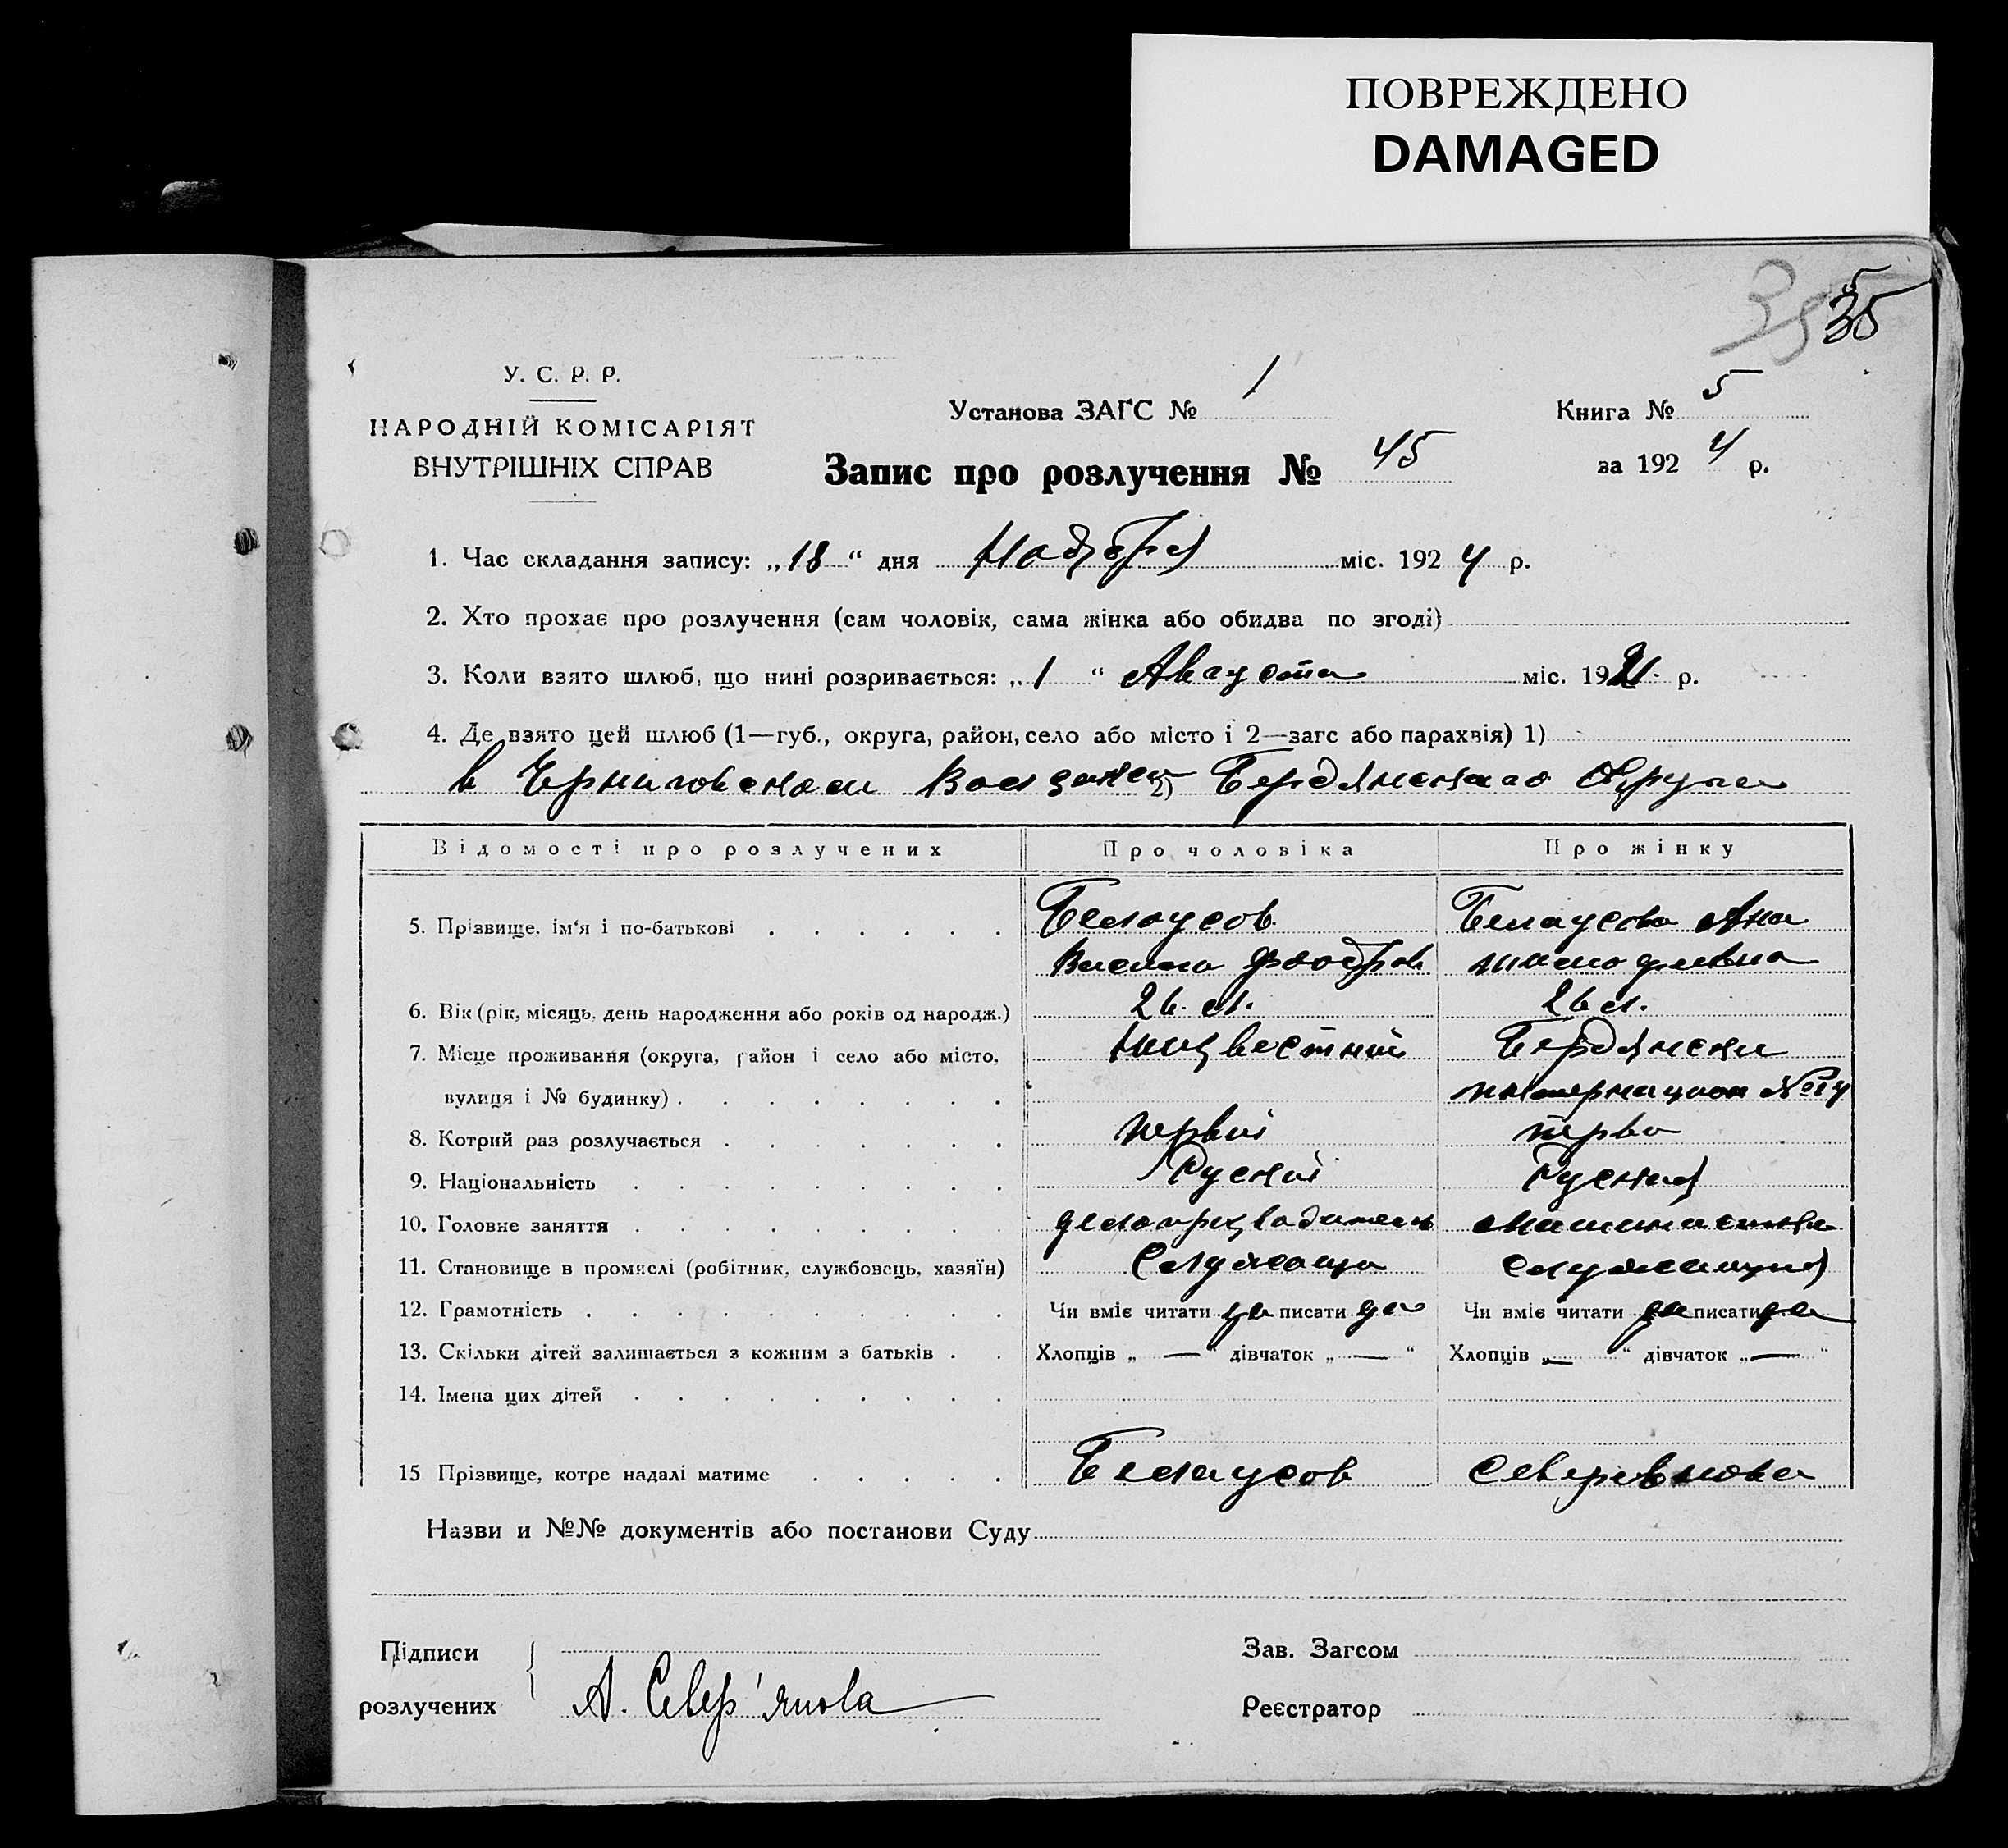 ПОВРЕЖДЕНО
DAMAGED
35 35
5
У. С. Р. Р.
НАРОДНІЙ КОМІСАРІЯТ
ВНУТРІШНІХ СПРАВ
Установа ЗАГС № 1
Книга № 5
за 1924 р.
Запис про розлучення № 45
1. Час складання запису: „18“ дня Ноября міс. 1924 р.
2. Хто прохає про розлучення (сам чоловік, сама жінка або обидва по згоді)
3. Коли взято шлюб, що нині розривається: „1“ Августа міс. 1921 р.
4. Де взято цей шлюб (1—губ., округа, район, село або місто і 2—загс або парахвія) 1)
в Черниговском 2) Бердянскаго Округа
Відомості про розлучених Про чоловіка Про жінку
5. Прізвище, ім'я і по-батькові Белоусов Белаусова Ана
Васили Феодров
6. Вік (рік, місяць, день народження або років од народж.) 26 л. 26 л.
7. Місце проживання (округа, район і село або місто, Неизвестний Бердянски
вулиця і № будинку) интернацион №
8. Котрий раз розлучається первий перва
9. Національність Руский Руская
10. Головне заняття делопрезводитель машинистка
11. Становище в промислі (робітник, службовець, хазяїн) Служащи служащия
12. Грамотність Чи вміє читати да писати да Чи вміє читати да писати да
13. Скільки дітей залишається з кожним з батьків Хлопців „—“ дівчаток „—“ Хлопців „—“ дівчаток „—“
14. Імена цих дітей
15 Прізвище, котре надалі матиме Белаусов
Назви и №№ документів або постанови Суду
Підписи
розлучених А. Север'янова
Зав. Загсом
Реєстратор